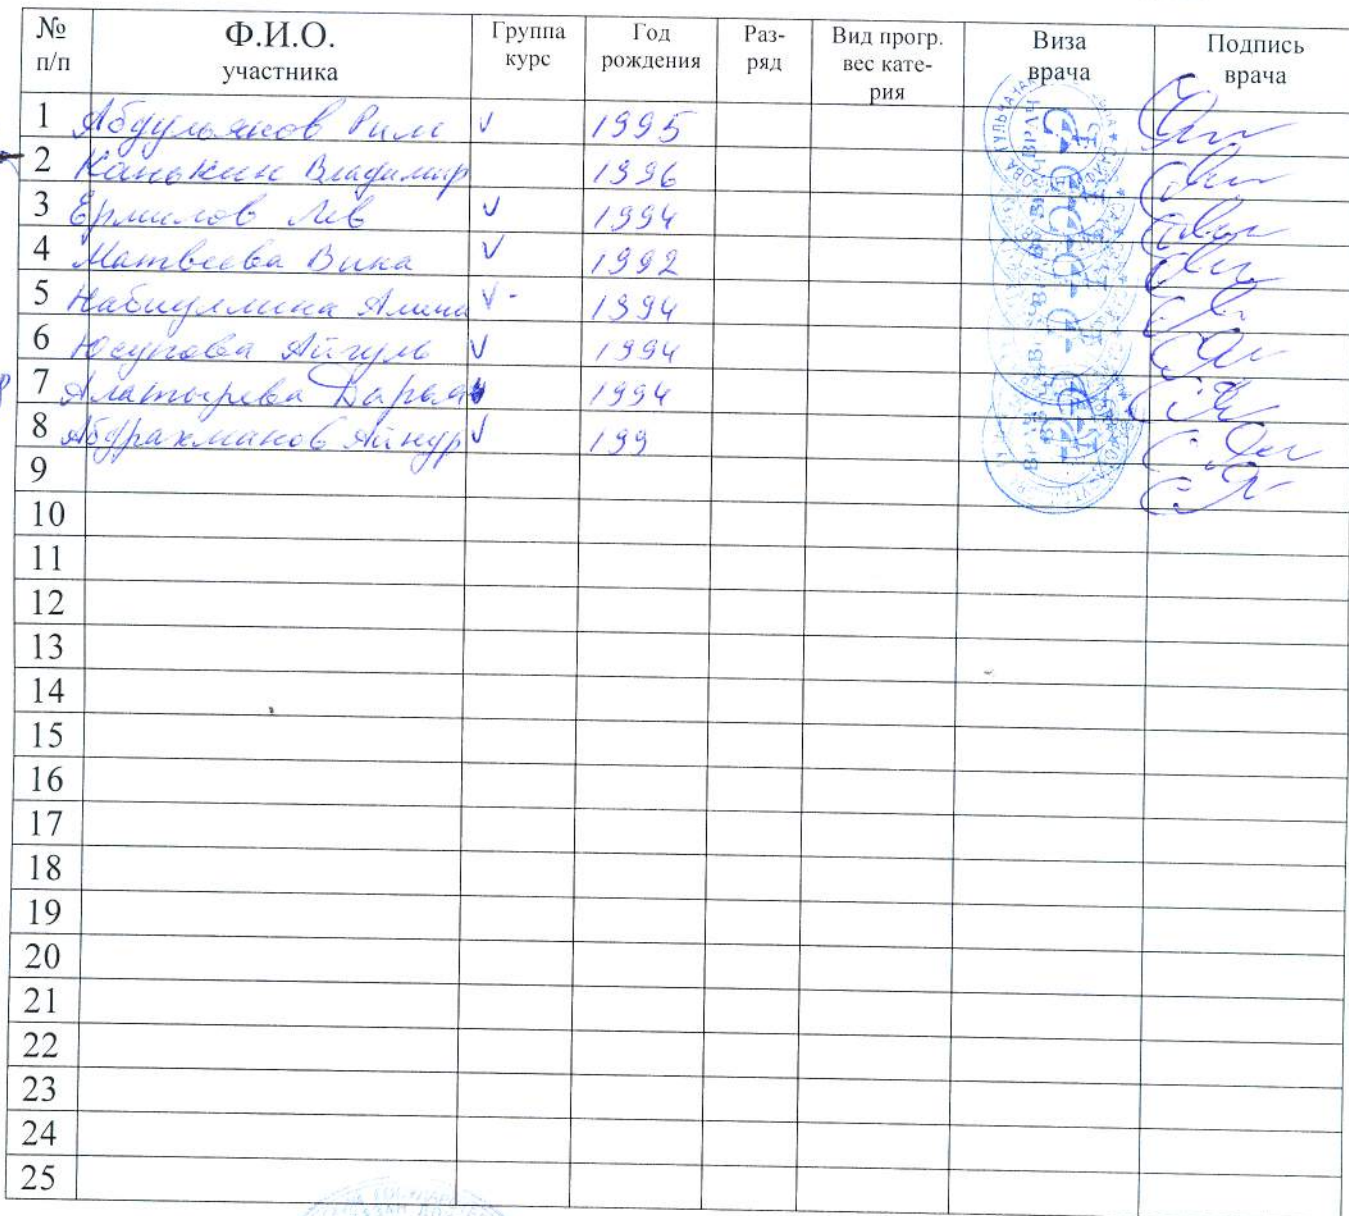 № п/п Ф.И.О. участника Группа курс Год рождения Раз-ряд Вид прогр. вес кате-рия Виза врача Подпись врача
1 Абдульянов Рим V 1995
2 Канокин Владимир 1996
3 Ермилов Лев V 1994
4 Матвеева Вика V 1992
5 Набиуллина Алина V - 1994
6 Юсупова Айгуль V 1994
7 Алатырева Дарья V 1994
8 Абдрахманов Айнур V 199
9
10
11
12
13
14
15
16
17
18
19
20
21
22
23
24
25